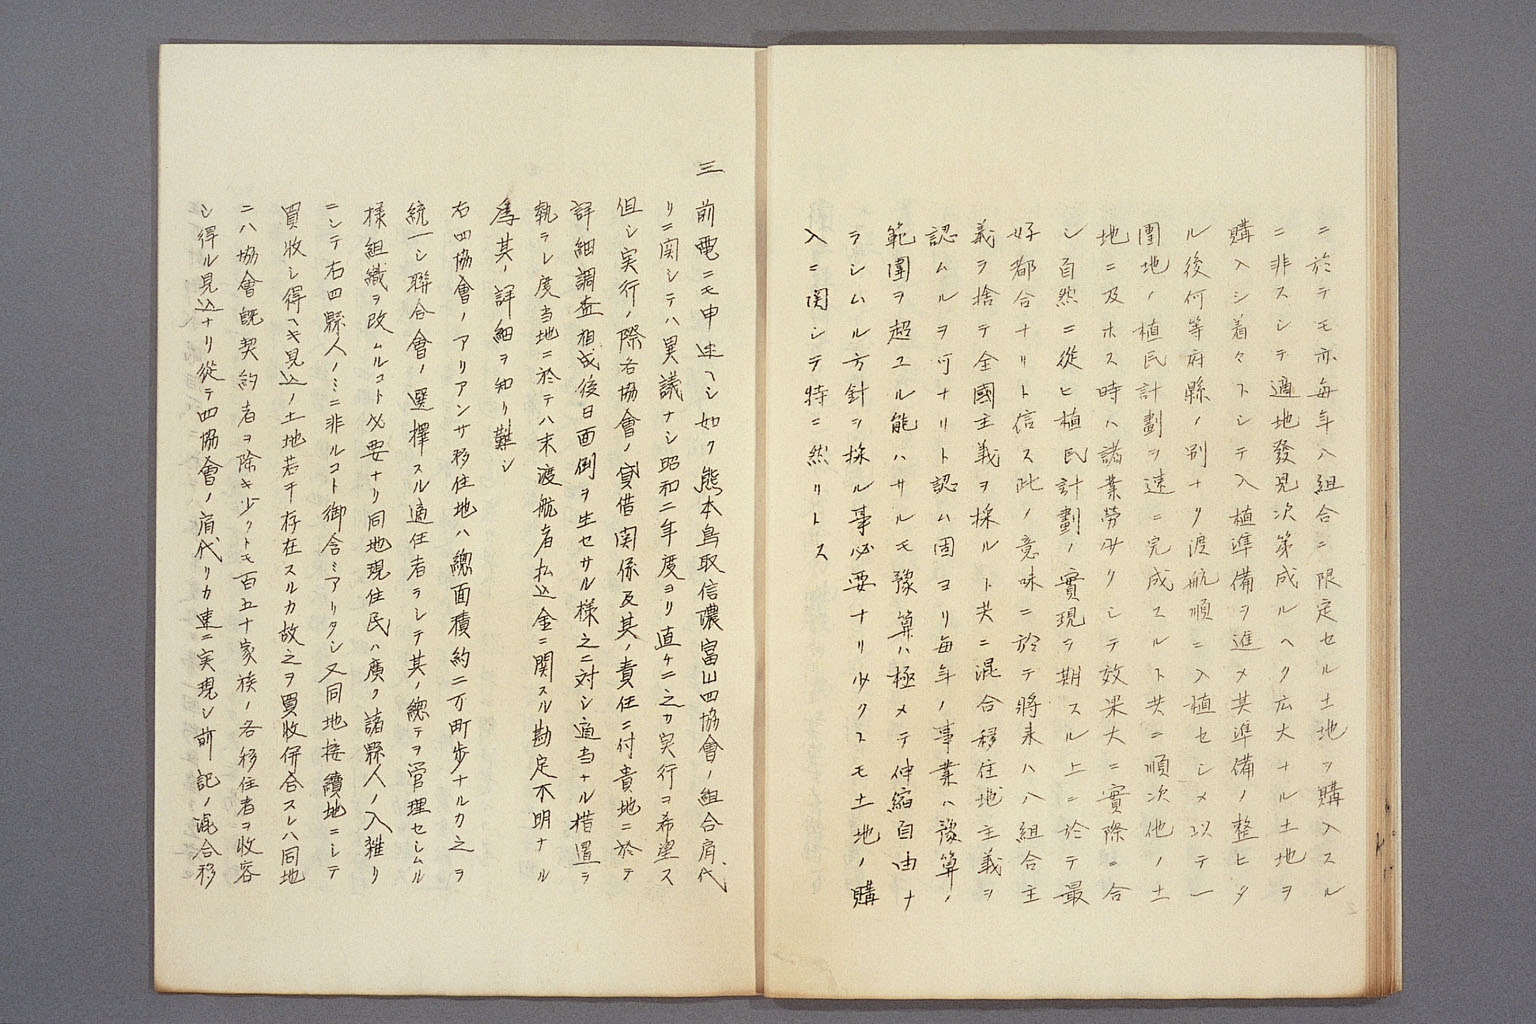 ニ於テモ亦毎年八組合ニ限定セル土地ヲ購入スル
ニ非スシテ適地發見次第成ルヘク広大ナル土地ヲ
購入シ着々トシテ入植準備ヲ進メ其準備ノ整ヒタ
ル後何等府縣ノ別ナク渡航順ニ入植セシメ以テ一
團地ノ植民計劃ヲ速ニ完成スルト共ニ順次他ノ土
地ニ及ホス時ハ諸業勞少クシテ效果大ニ實際ニ合
シ自然ニ從ヒ植民計劃ノ實現ヲ期スル上ニ於テ最
好都合ナリト信ス此ノ意味ニ於テ將来ハ八組合主
義ヲ捨テ全國主義ヲ採ルト共ニ混合移住地主義ヲ
認ムルヲ可ナリト認ム固ヨリ毎年ノ事業ハ豫算ノ
範圍ヲ超ユル能ハサルモ豫算ハ極メテ伸縮自由ナ
ラシムル方針ヲ採ル事必要ナリ少クトモ土地ノ購
入ニ関シテ特ニ然リトス
三 前電ニモ申述ヘシ如ク熊本鳥取信濃富山四協會ノ組合肩代
リニ関シテハ異議ナシ昭和二年度ヨリ直ケニ之カ実行ヲ希望ス
但シ実行ノ際各協會ノ貸借関係及其ノ責任ニ付貴地ニ於テ
詳細調査相成後日面倒ヲ生セサル様之ニ対シ適当ナル措置ヲ
執ラレ度当地ニ於テハ未渡航者払込金ニ関スル勘定不明ナル
為其ノ詳細ヲ知リ難シ
右四協會ノアリアンサ移住地ハ總面積約二万町歩ナルカ之ヲ
統一シ聯合會ノ選擇スル適任者ラシテ其ノ總テヲ管理セシムル
様組織ヲ改ムルコト必要ナリ同地現住民ハ廣ク諸縣人ノ入雜リ
ニシテ右四縣人ノミニ非ルコト御含ミアリタシ又同地接續地ニシテ
買收シ得ヘキ見込ノ土地若干存在スルカ故之ヲ買收併合スレハ同地
ニハ協會既契約者ヲ除キ少クトモ百五十家族ノ各移住者ヲ收容
シ得ル見込ナリ從テ四協會ノ肩代リカ速ニ実現シ前記ノ混合移